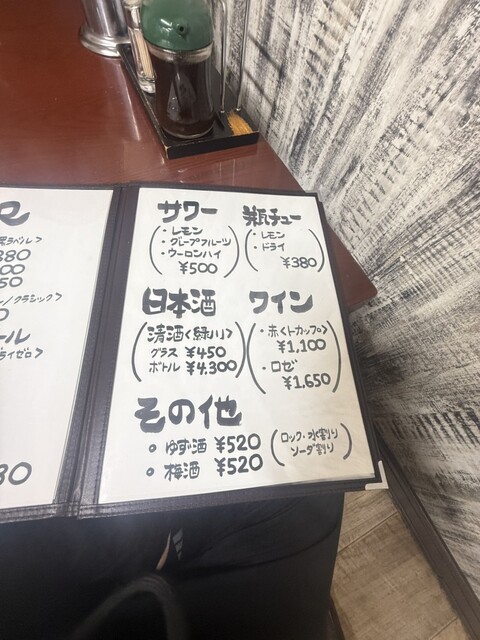 黒ラベル>
380
00
50
ノクラシック>
ール
ライゼロ>
サワー
・レモン
・グープフルーツ
・ウーロンハイ
¥500
瓶チュー
・レモン
・ドライ
¥380
日本酒
清酒<緑川>
グラス ¥450
ボトル ¥4,300
ワイン
・赤<トカップ>
¥1,100
・ロゼ
¥1,650
その他
ゆず酒 ¥520
梅酒 ¥520
ロック・水割り
ソーダ割り